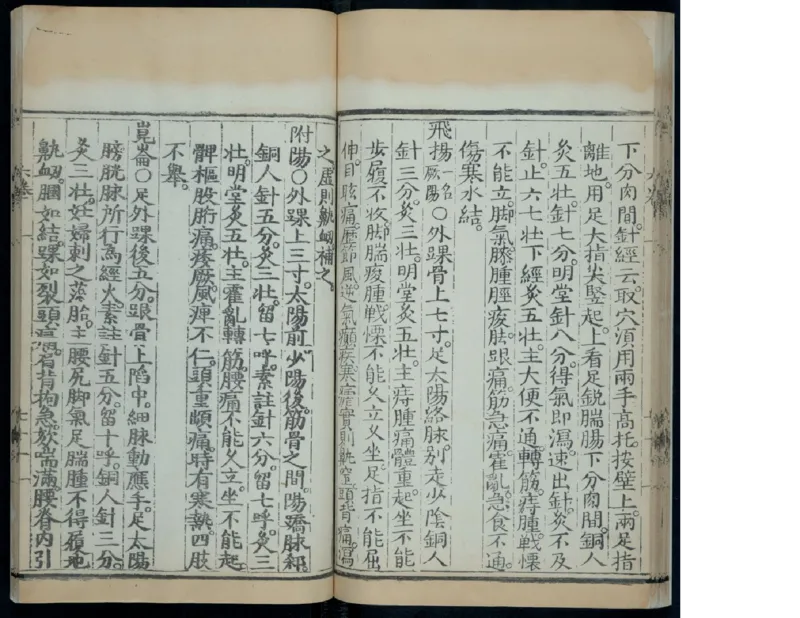 下分肉間。針經云取穴湏用兩手高托。按壁上。兩足指
離地。用足大指尖竪起。上看足銳腨腸下分肉間。銅人
灸五壮。針七分。明堂針八分。得氣即瀉。速出針。灸不及
針。止六七壮。下經灸五壮。主大便不通。轉筋。痔腫。戰慄
不能立。脚氣膝腫脛痠。脚跟痛。筋急痛。霍亂。急食不通。
傷寒水結。
飛揚一名厥陽〇外踝骨上七寸。足太陽絡脉。別走少陰。銅人
針三分。灸三壮。明堂灸五壮。主痔腫痛。體重。起坐不能
步履不收。脚腨痠腫。戰慄不能久立久坐。足指不能屈
伸。目眩痛。歷節風。逆氣癲疾。寒瘧。實則鼽窒。頭背痛。瀉
之。虛則鼽衂。補之。
附陽〇外踝上三寸。太陽前。少陽後。筋骨之間。陽蹻脉郄
銅人針五分。灸三壮。留七呼。素註針六分。留七呼。灸三
壮。明堂灸五壮。主霍亂轉筋。腰痛不能久立。坐不能起。
髀樞股胻痛。痿厥風痺不仁。頭重䪼痛。時有寒熱。四肢
不舉。
崑崙〇足外踝後五分。跟骨上陷中。細脉動應手。足太陽
膀胱脉所行為經火。素註針五分。留十呼。銅人針三分。
灸三壮。妊婦刺之落胎。主腰尻脚氣。足腨腫不得履地
鼽衂。膕如結。踝如裂。頭痛。肩背拘急。欬喘滿。腰脊內引